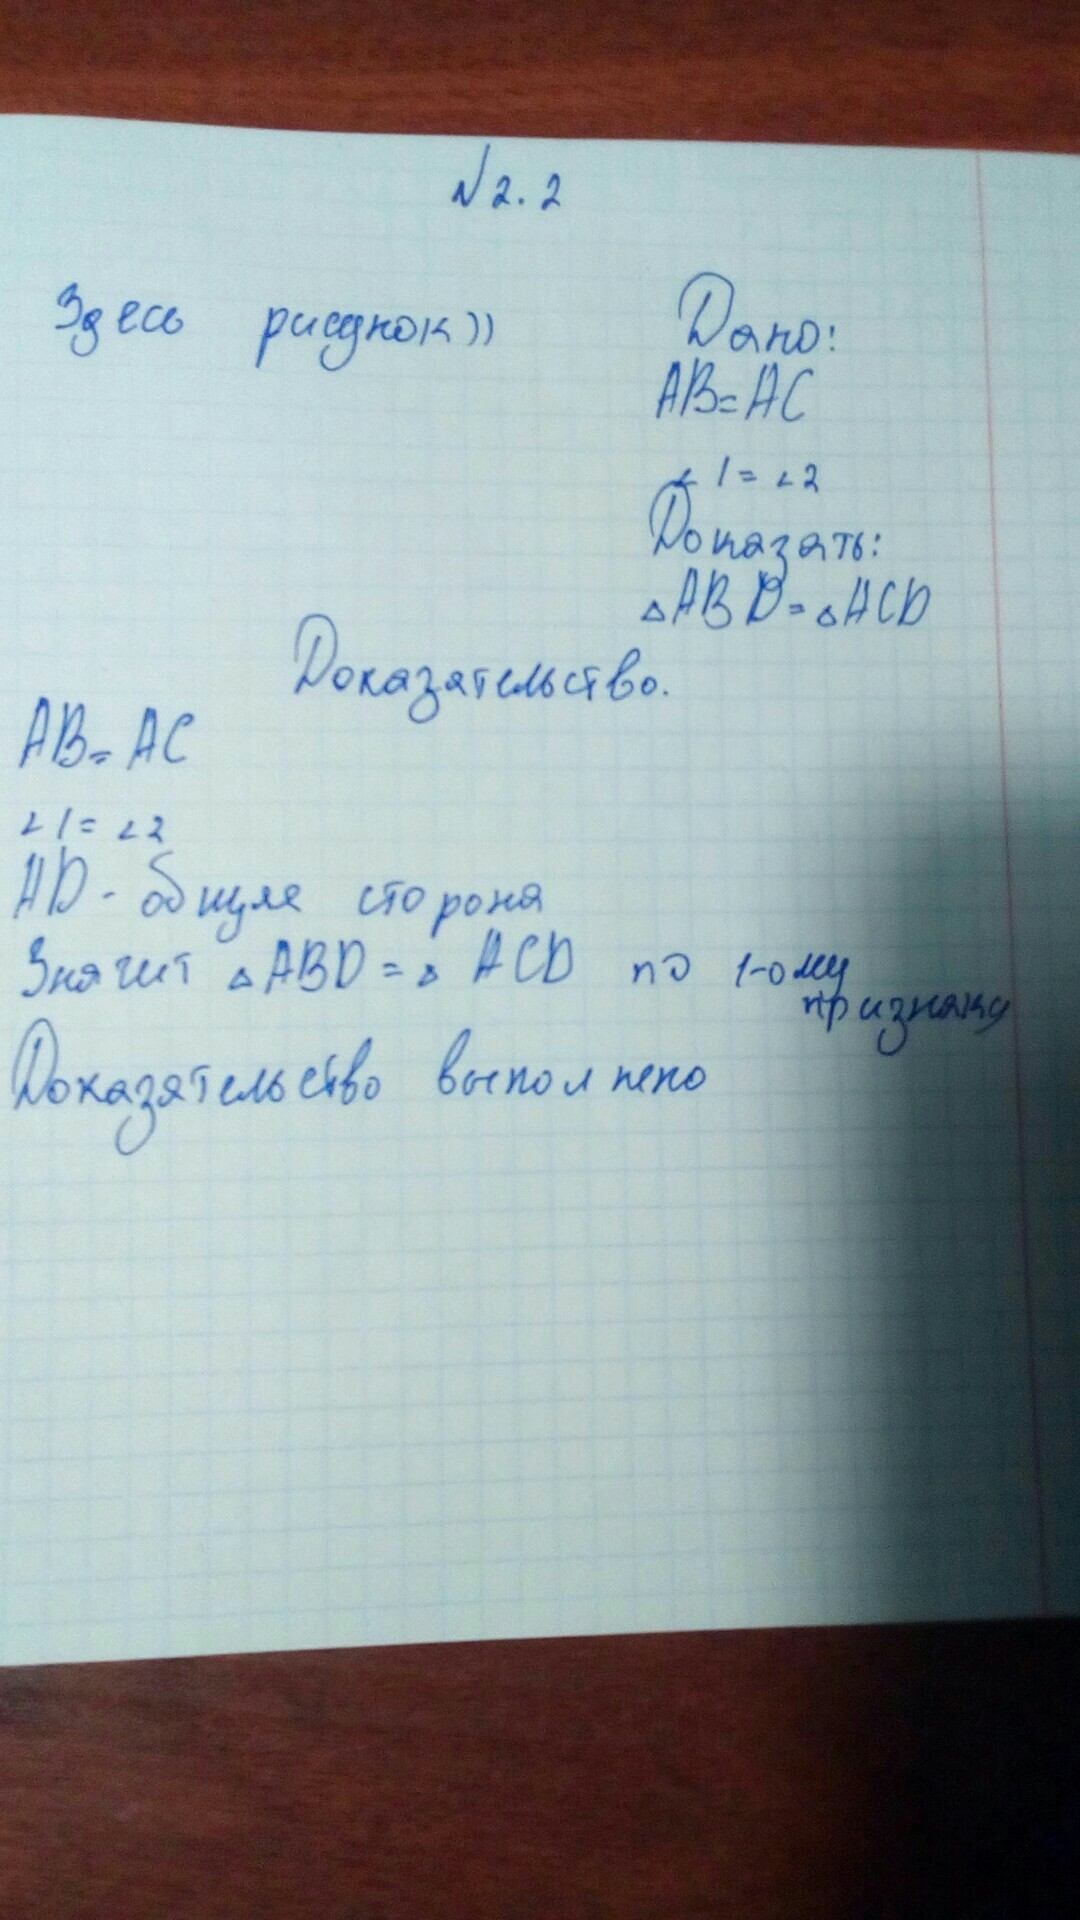 №2.2
Здесь рисунок))
Дано:
AB=AC
∠1=∠2
Доказать:
△ABD=△ACD
Доказательство.
AB=AC
∠1=∠2
AD- общая сторона
Значит △ABD=△ACD по 1-ому
признаку
Доказательство выполнено